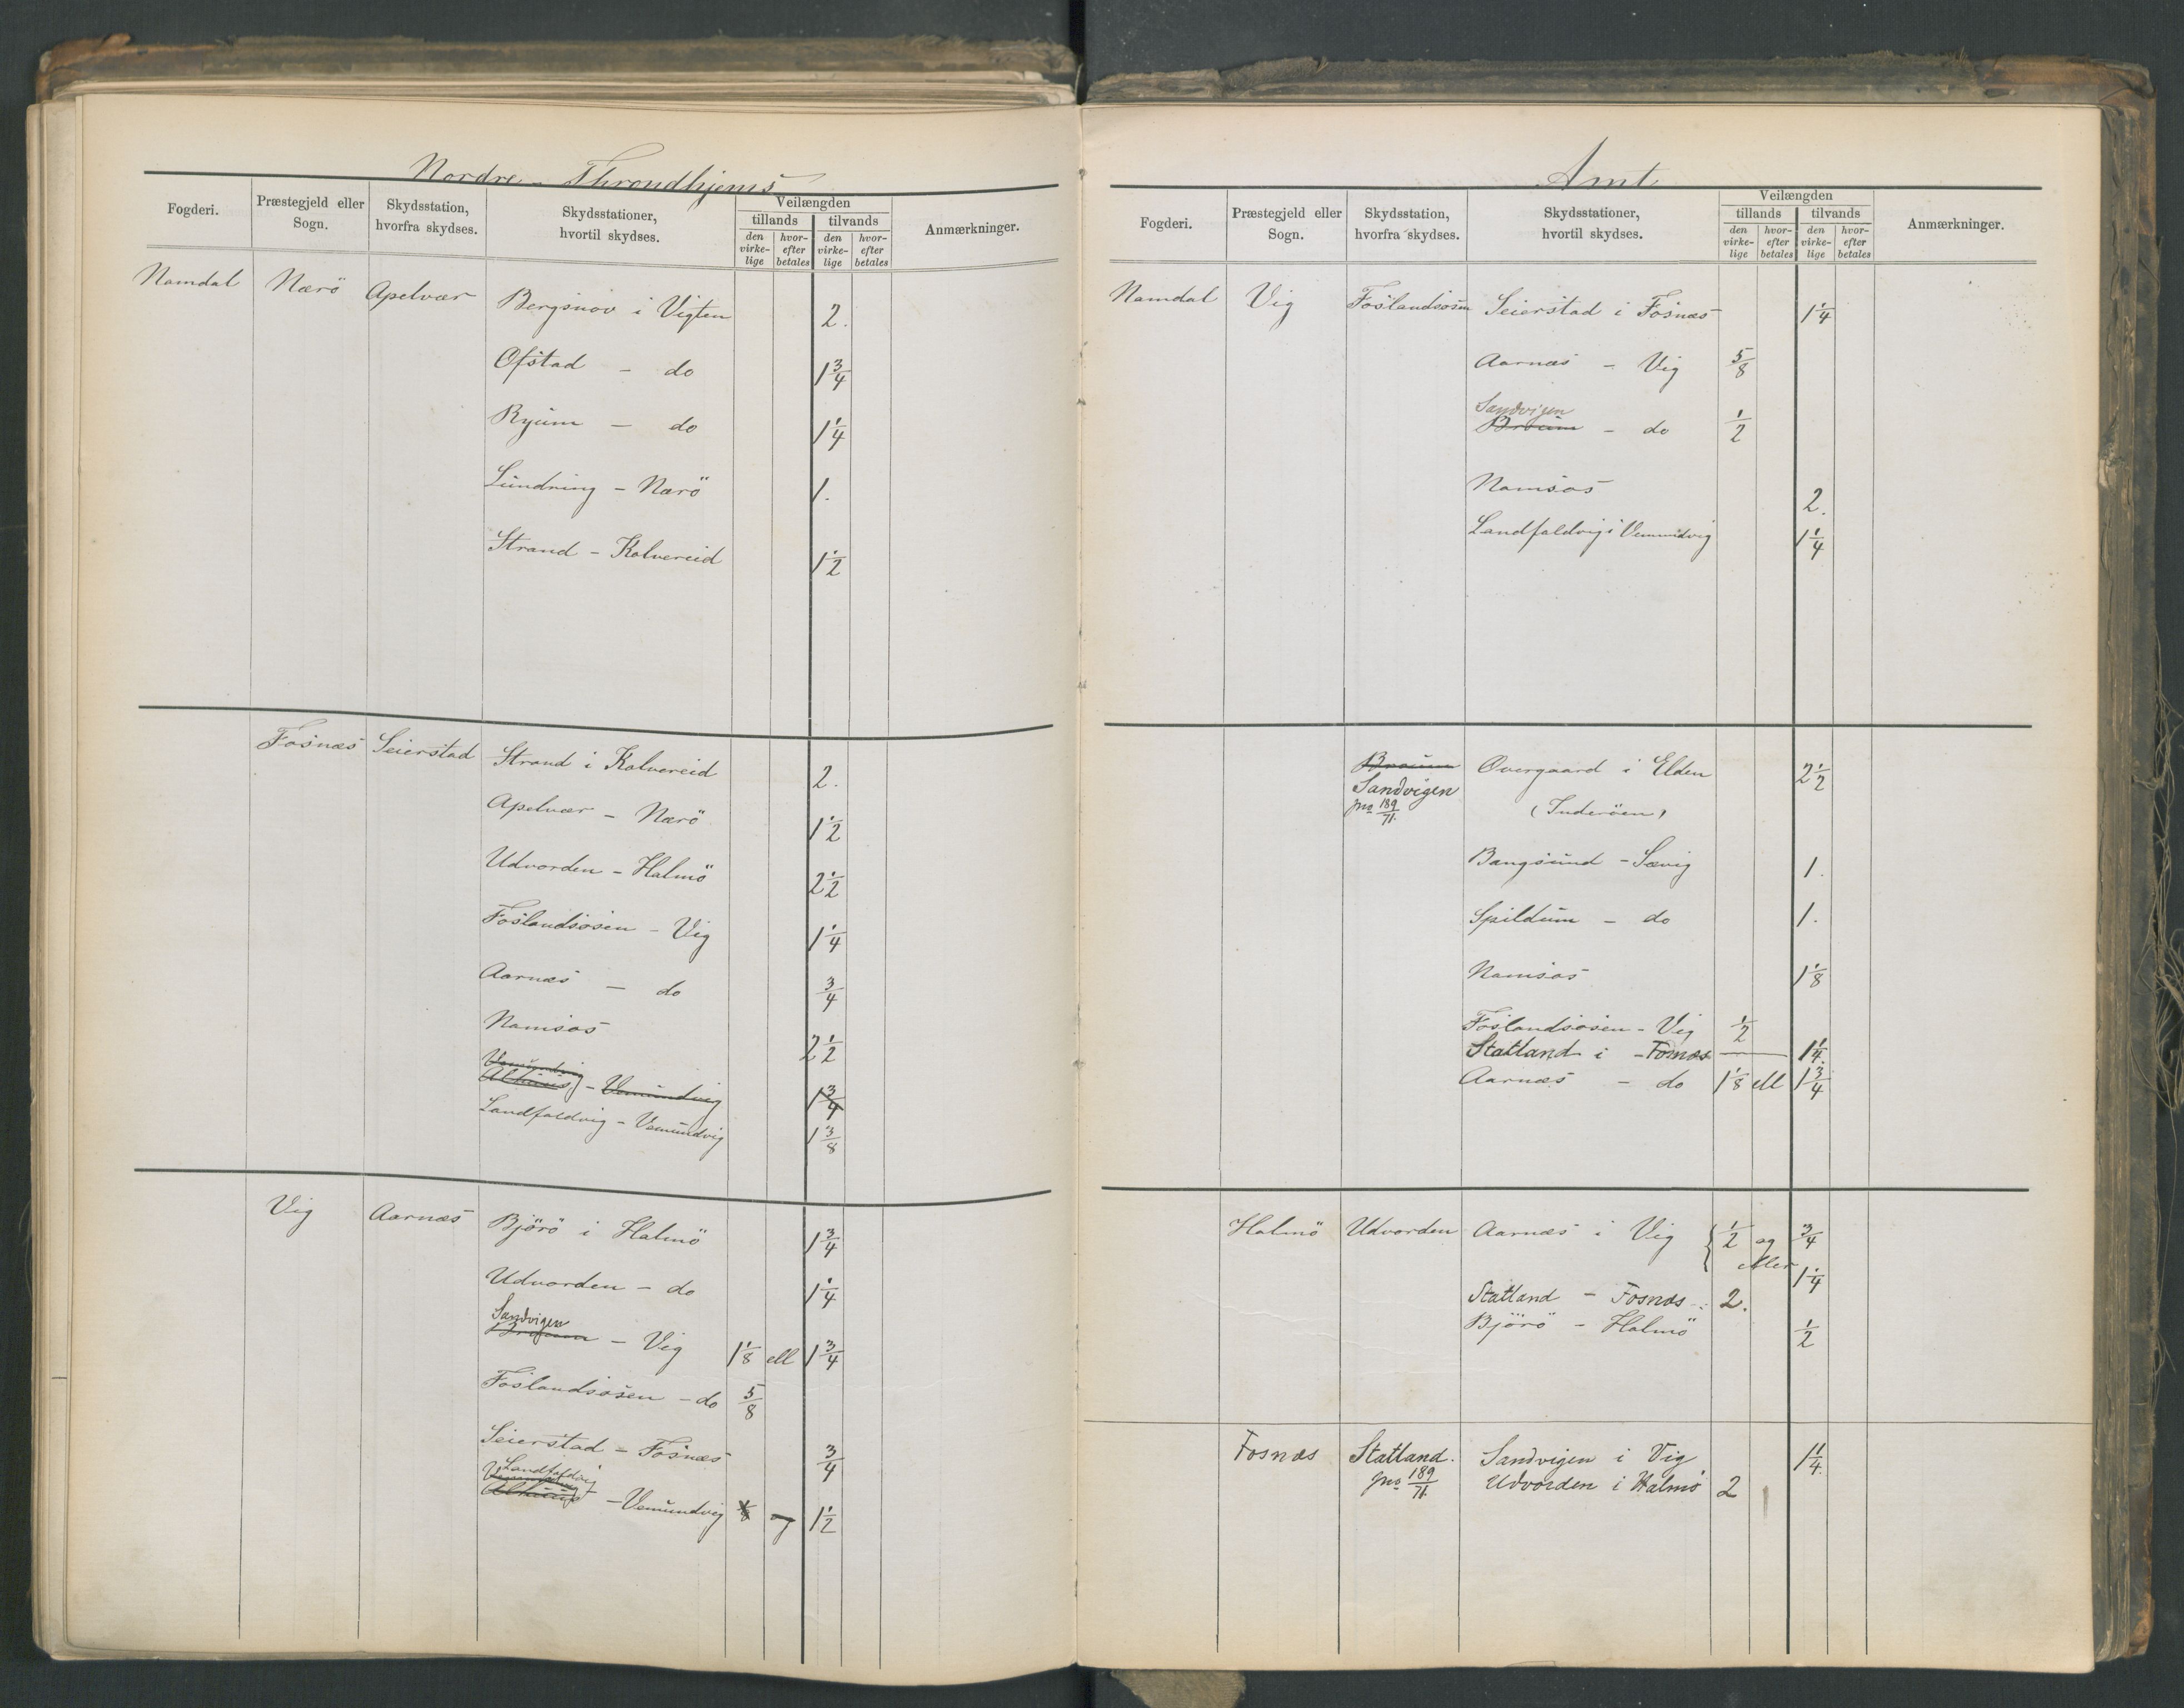 Nordre - Throndhjems
Fogderi. | Præstegjeld eller Sogn. | Skydsstation, hvorfra skydses. | Skydsstationer, hvortil skydses. | Veilængden | Anmærkninger.
tillands | tilvands
den virkelige | hvorefter betales | den virkelige | hvorefter betales
Namdal Nærö Apelvær Bergsnov i Vigten 2.
Ofstad - do 1 3/4
Ryum - do 1 1/4
Lundring - Nærö 1.
Strand - Kolvereid 1 1/2
Fosnæs Seierstad Strand i Kolvereid 2.
Apelvær - Nærö 1 1/2
Udvorden - Halmö 2 1/2
Foslandsosen - Vig 1 1/4
Aarnæs - do 3/4
Namsos 2 1/2
Vemundvig
- Vemundvig 1 3/4
Landfaldvig - Vemundvig 1 3/8
Vig Aarnæs Björö i Halmö 1 3/4
Udvorden - do 1 1/4
Sandvigen
Broum - Vig 1 1/8 ell 1 3/4
Foslandsosen - do 5/8
Seierstad - Fosnæs 3/4
Landfaldvig
- Vemundvig og 1 1/2
Amt
Fogderi. | Præstegjeld eller Sogn. | Skydsstation, hvorfra skydses. | Skydsstationer, hvortil skydses. | Veilængden | Anmærkninger.
tillands | tilvands
den virkelige | hvorefter betales | den virkelige | hvorefter betales
Namdal Vig Foslandsosen Seierstad i Fosnæs 1 1/4
Aarnæs - Vig 5/8
Sandvigen
Broum - do 1/2
Namsos 2.
Landfaldvig i Vemundvig 1 1/4
Broum Overgaard i Elden 2 1/2
Sandvigen
(Inderöen)
189/71.
Bangsund - Sævig 1.
Spildum - do 1.
Namsos 1 1/8
Foslandsosen - Vig 1/2
Statland i - Fosnæs 1 1/4.
Aarnæs - do 1 1/8 ell 1 3/4
Halmö Udvorden Aarnæs i Vig { 1/2 og 3/4
eller 1 1/4
Statland - Fosnæs 2.
Björö - Halmö 1/2
Fosnæs Statland. Sandvigen i Vig 1 1/4.
189/71. Udvorden i Halmö 2